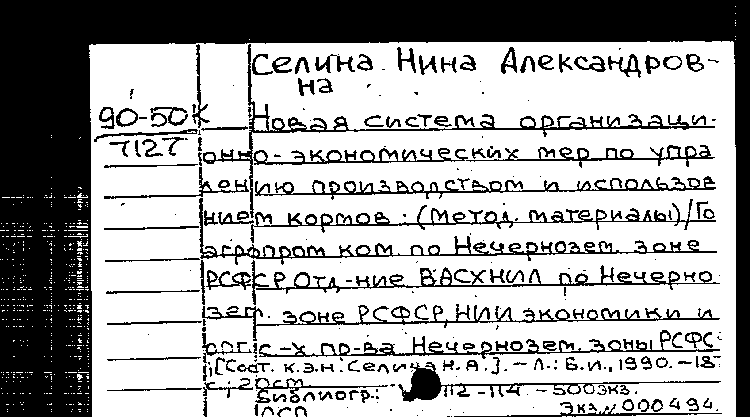 Селина Нина Александров-
на
90-50К
7127
Новая система организаци-
онно-экономических мер по упра
лению производством и использов
нием кормов : (Метод. материалы)/Го
агропром ком. по Нечернозем. зоне
РСФСР, Отд-ние ВАСХНИЛ по Нечерно
зем. зоне РСФСР, НИИ экономики и
орг. с-х пр-ва Нечернозем. зоны РСФС
[Сост. к.э.н. Селина Н.А.]. - Л.: Б.и., 1990. - 18
с.; 20см
Библиогр.: 112-114 - 500экз.
Экз. № 000494.